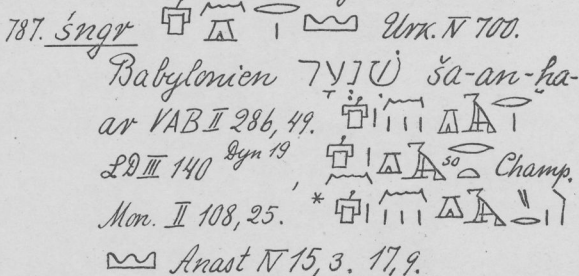 787. śngr Urk. IV 700.
Babylonien שִׁנְעָר ša-an-ḫa-
ar VAB II 286, 49.
LD III 140 Dyn 19, so Champ.
Mon. II 108, 25. *
Anast IV 15, 3. 17, 9.